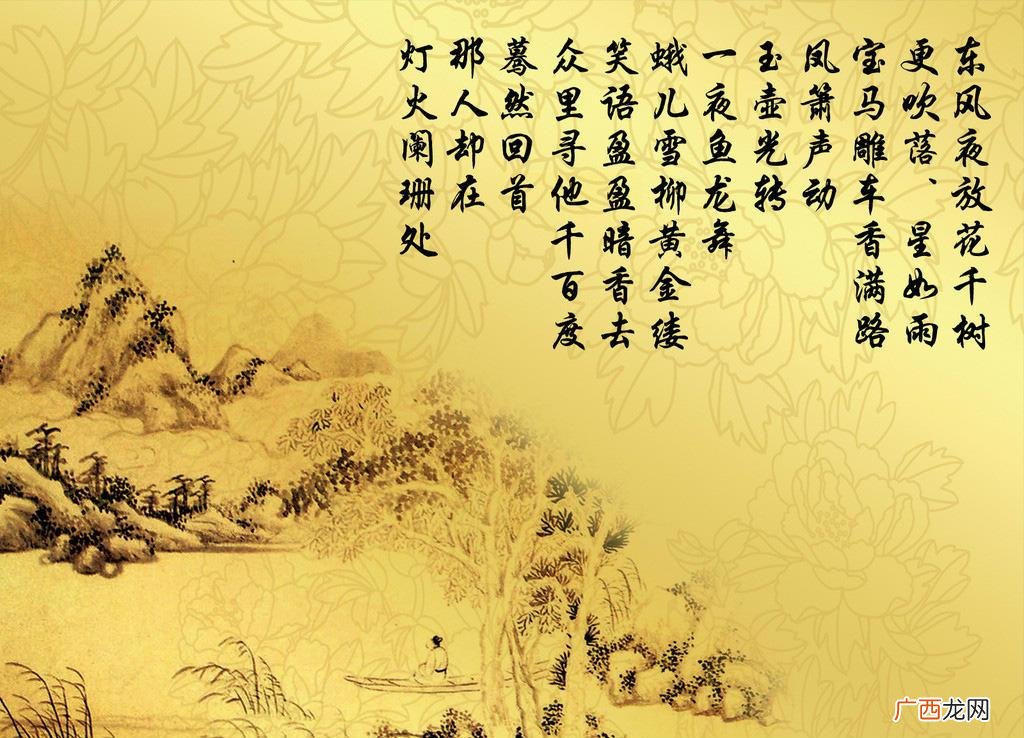 东风夜放花千树
更吹落、星如雨
宝马雕车香满路
凤箫声动
玉壶光转
一夜鱼龙舞
蛾儿雪柳黄金缕
笑语盈盈暗香去
众里寻他千百度
蓦然回首
那人却在
灯火阑珊处
广西龙网